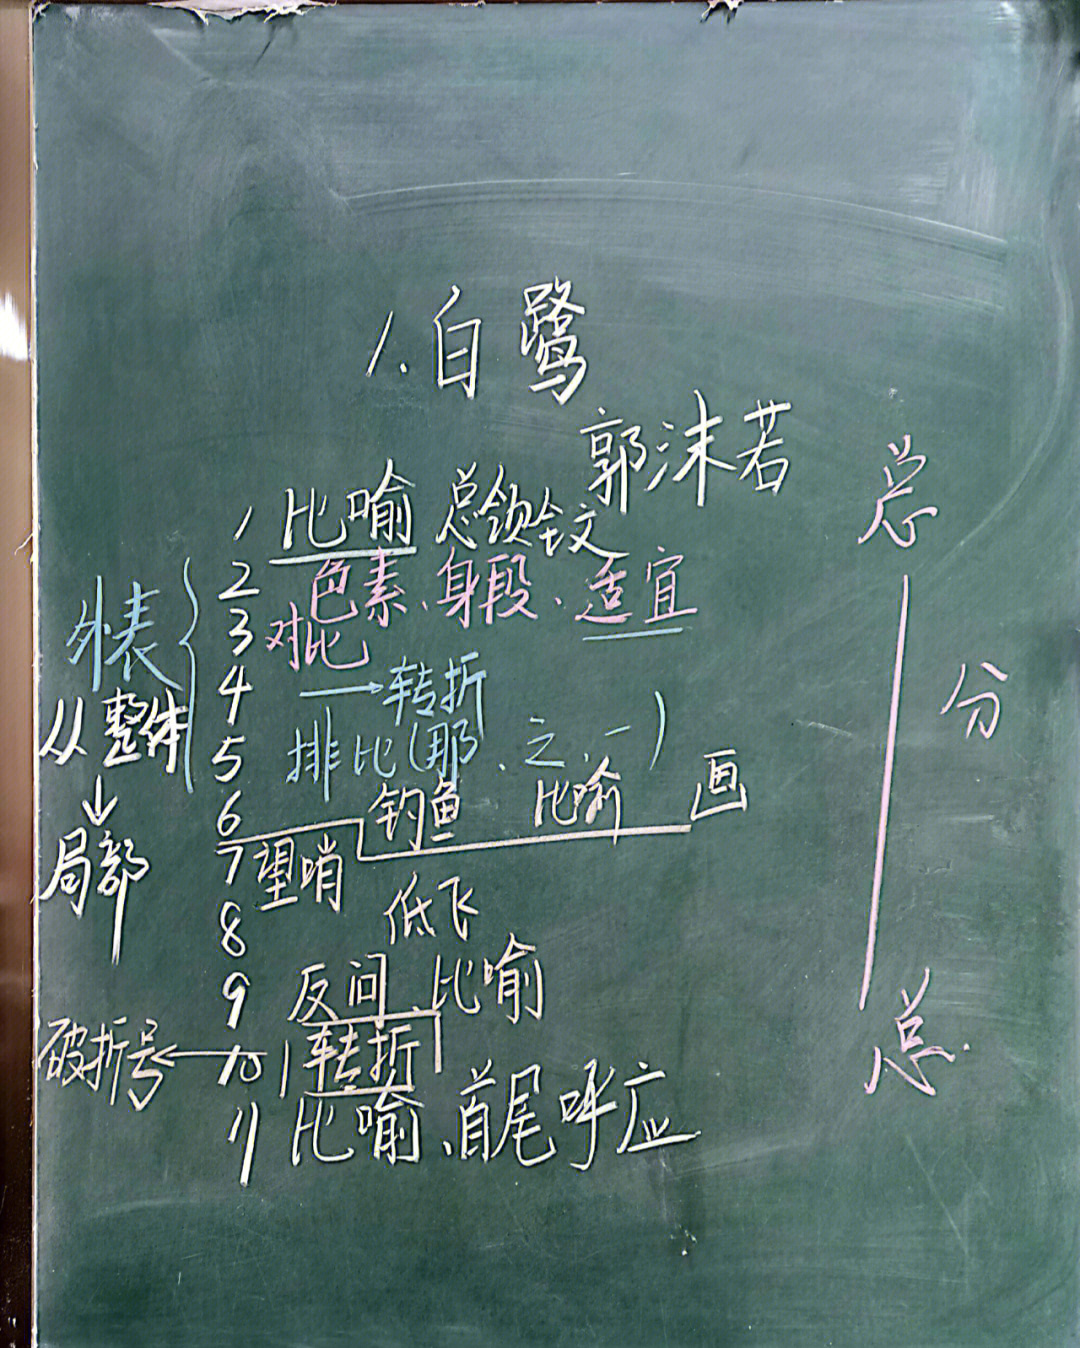 1.白鹭
郭沫若
1 比喻 总领全文
2 色素、身段、适宜
3 对比
4 →转折
5 排比(那、之、一)
6 钓鱼 比喻 画
7 望哨
8 低飞
9 反问、比喻
10 转折
11 比喻、首尾呼应
外表
从整体
↓
局部
破折号←
总
分
总